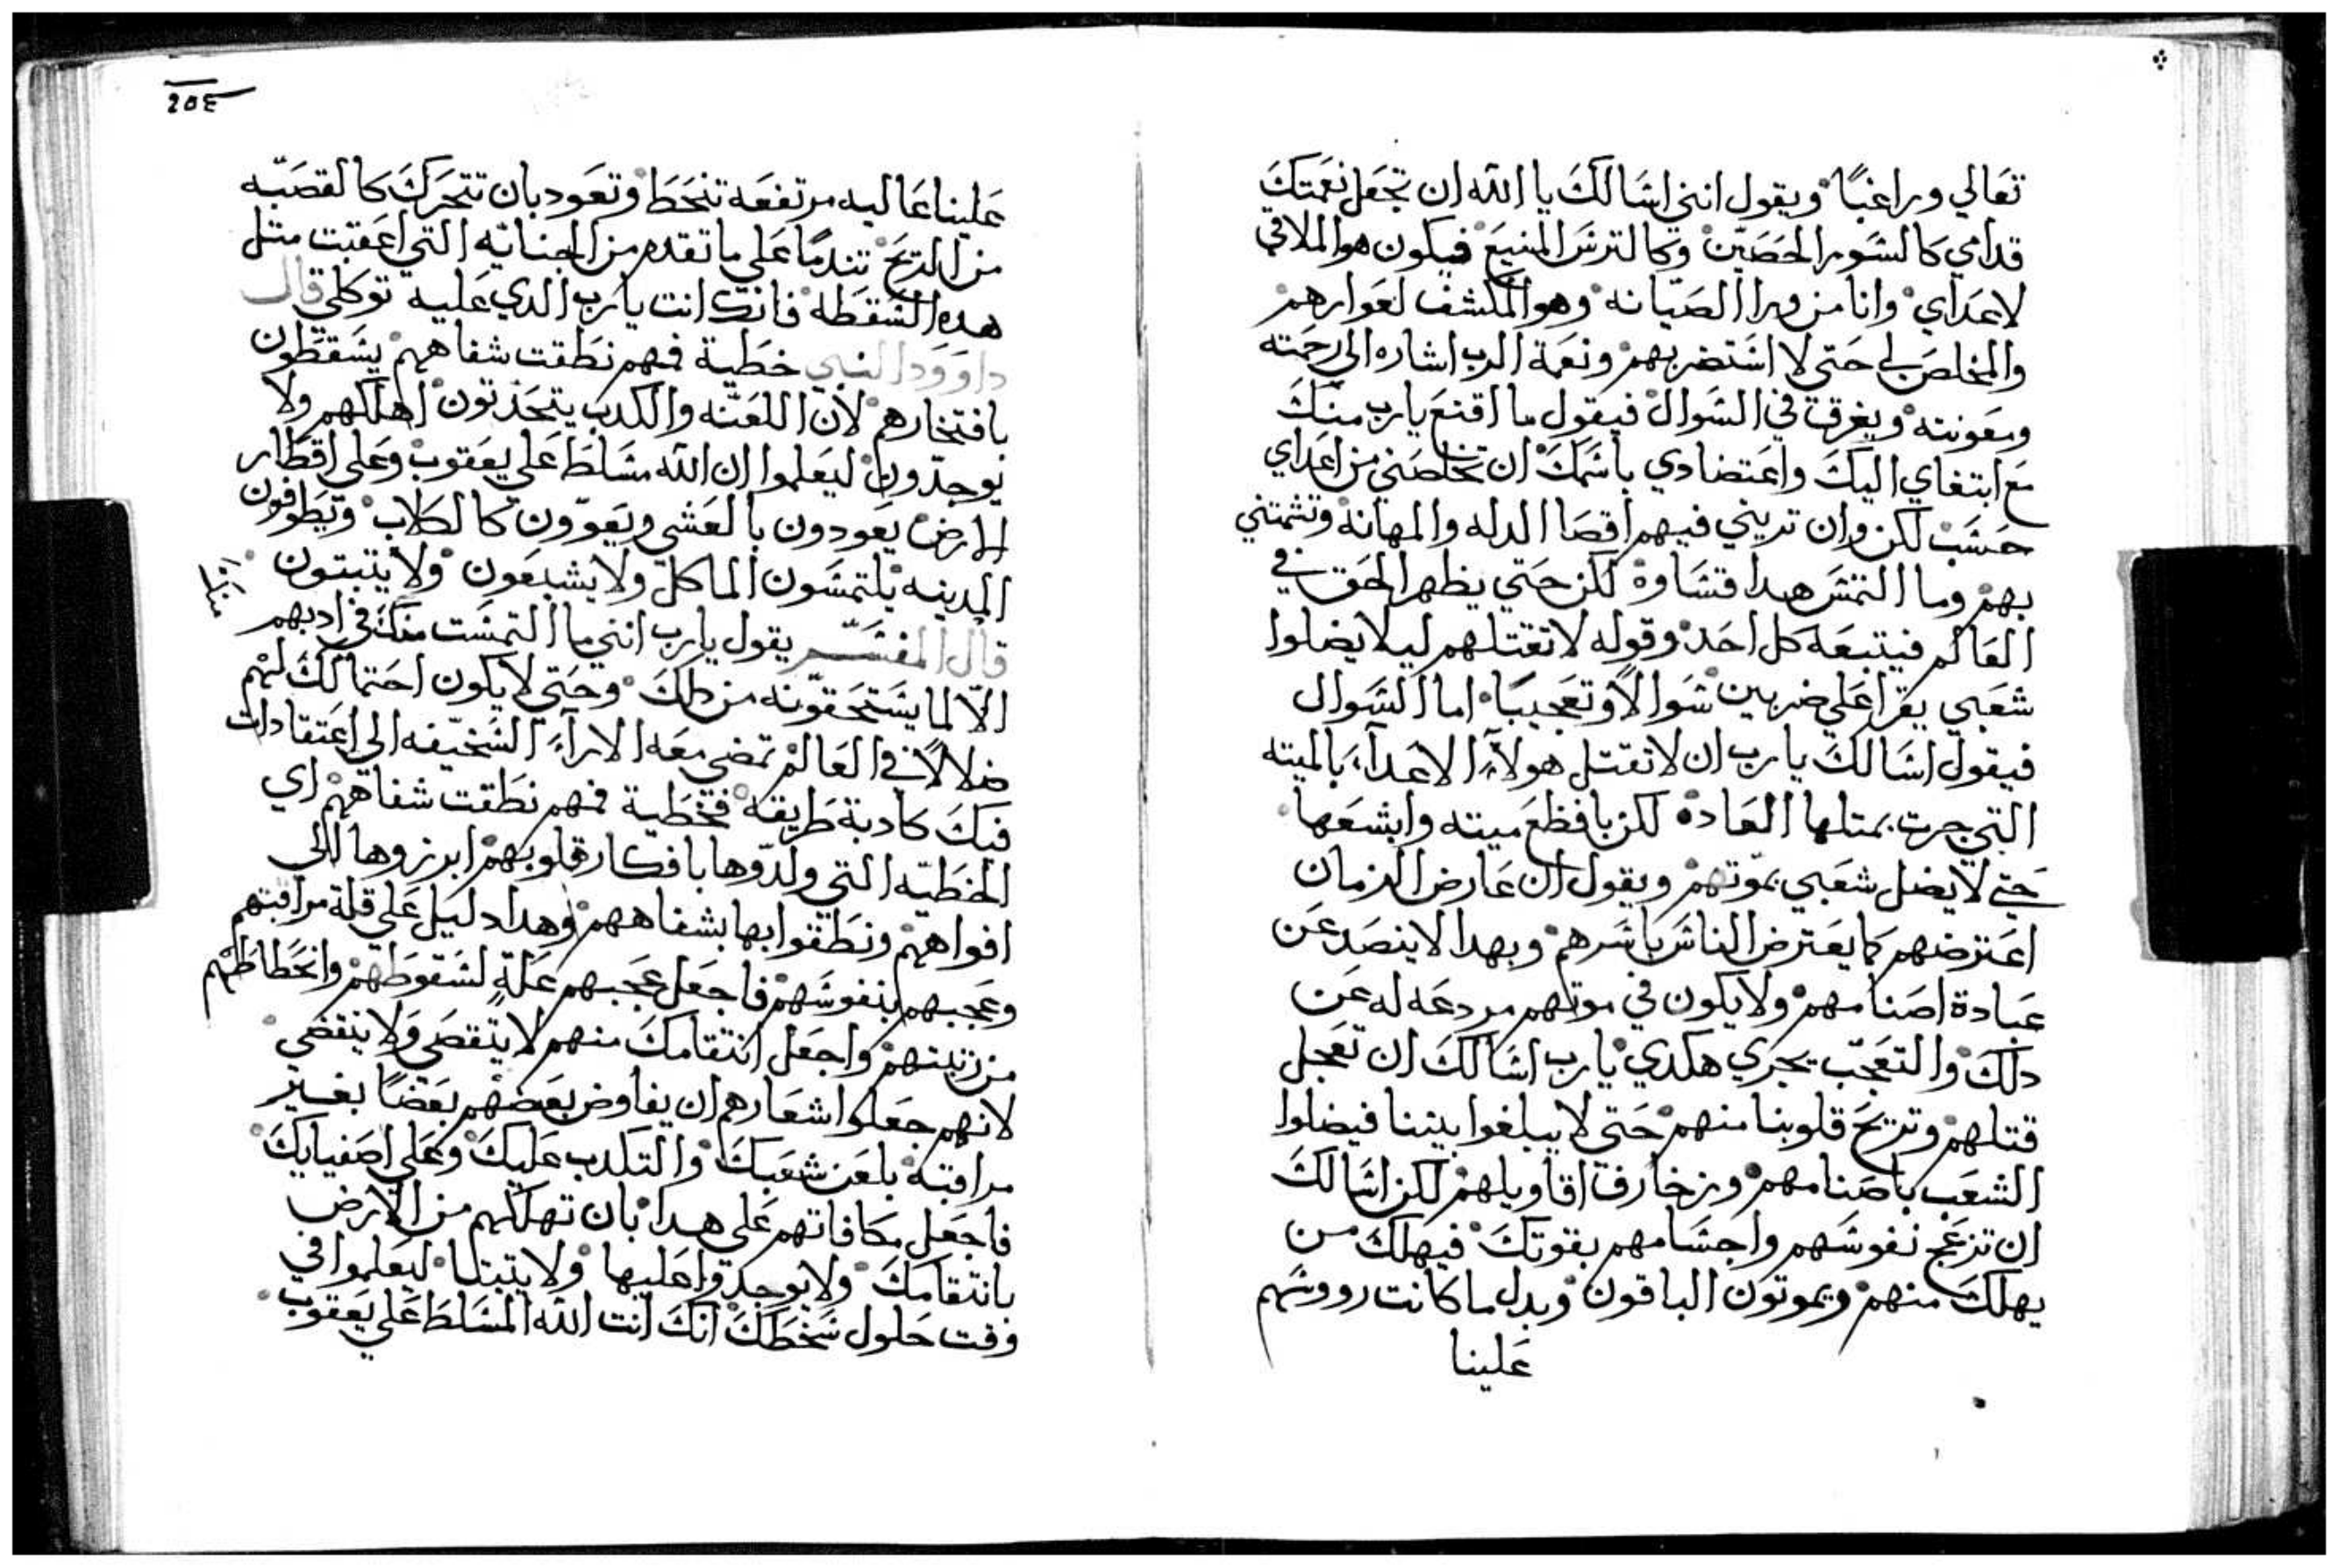 تعالي وراغبًا ويقول انني اسالك يا الله ان تجعل نعمتك
قدامي كالسور الحصين وكالترس المنيع فيكون هو الملاقي
لاعداي وانا من ورا الصيانه وهو المكشف لعوارهم
والمخلص لي حتى لا استضر بهم ونعمة الرب اشاره الى رحمته
ومعونته ويغرق في السوال فيقول ما اقنع يا رب منك
مع ابتغاي اليك واعتضادي باسمك ان تخلصني من اعداي
حسب لكن وان تريني فيهم اقصا الدله والمهانه وتشمتني
بهم وما التمس هدا قساوة لكن حتي يظهر الحق في
العالم فيتبعه كل احد وقوله لا تقتلهم ليلا يضلوا
شعبي يقرا علي ضربين سوالًا وتعجيبًا اما السوال
فيقول اسالك يا رب ان لا تقتل هولاء الاعداء بالميته
التي جرت بمتلها العادة لكن بافظع ميته وابشعها
حتي لا يضل شعبي بموتهم ويقول ان عارض الزمان
اعترضهم كما يعترض الناس باسرهم وبهدا لا ينصد عن
عبادة اصنامهم ولا يكون في موتهم مردعه له عن
دلك والتعجب يجري هكدي يا رب اسالك ان تعجل
قتلهم وتريح قلوبنا منهم حتى لا يبلغوا بيننا فيضلوا
الشعب باصنامهم وزخارف اقاويلهم لكن اسالك
ان تزعج نفوسهم واجسامهم بقوتك فيهلك من
يهلك منهم ويموتون الباقون وبدل ما كانت رووسهم
علينا
2٥٤
علينا عاليه مرتفعه تنحط وتعود بان تتحرك كالقصبه
من الريح تندمًا علي ما تقدم من الجنايه التي اعقبت متل
هده السقطه فانك انت يا رب الدي عليه توكلي قال
داوود النبي خطية فمهم نطقت شفاههم يسقطون
بافتخارهم لان اللعنه والكدب يتحدتون اهلكهم ولا
يوجدون ليعلموا ان الله مسلط علي يعقوب وعلي اقطار
الارض يعودون بالعشي ويعوون كالكلاب ويطوفون
المدينه يلتمسون الماكل ولا يشبعون ولا يتبتون
قال المفسر يقول يا رب انني ما التمست منك في ادبهم
الا لما يستحقونه من دلك وحتى لا يكون احتمالك لهم
ضلالًا في العالم تمضي معه الاراء السخيفه الى اعتقادات
فيك كادبة طريقه فخطية فمهم نطقت شفاههم اي
الخطيه التي ولدوها بافكار قلوبهم ابرزوها الى
افواههم ونطقوا بها بشفاههم وهدا دليل علي قلة مراقبتهم
وعجبهم بنفوسهم فاجعل عجبهم علة لسقوطهم وانحطاطهم
من زينتهم واجعل انتقامك منهم لا يتقصى ولا ينقضي
لانهم جعلوا اشعارهم ان يفاوض بعضهم بعضًا بغير
مراقبة بلعن شعبك والتكدب عليك وعلي اصفيايك
فاجعل مكافاتهم علي هدا بان تهلكهم من الارض
بانتقامك ولا يوجدوا عليها ولا يتبتا ليعلموا في
وقت حلول سخطك انك انت الله المسلط علي يعقوب